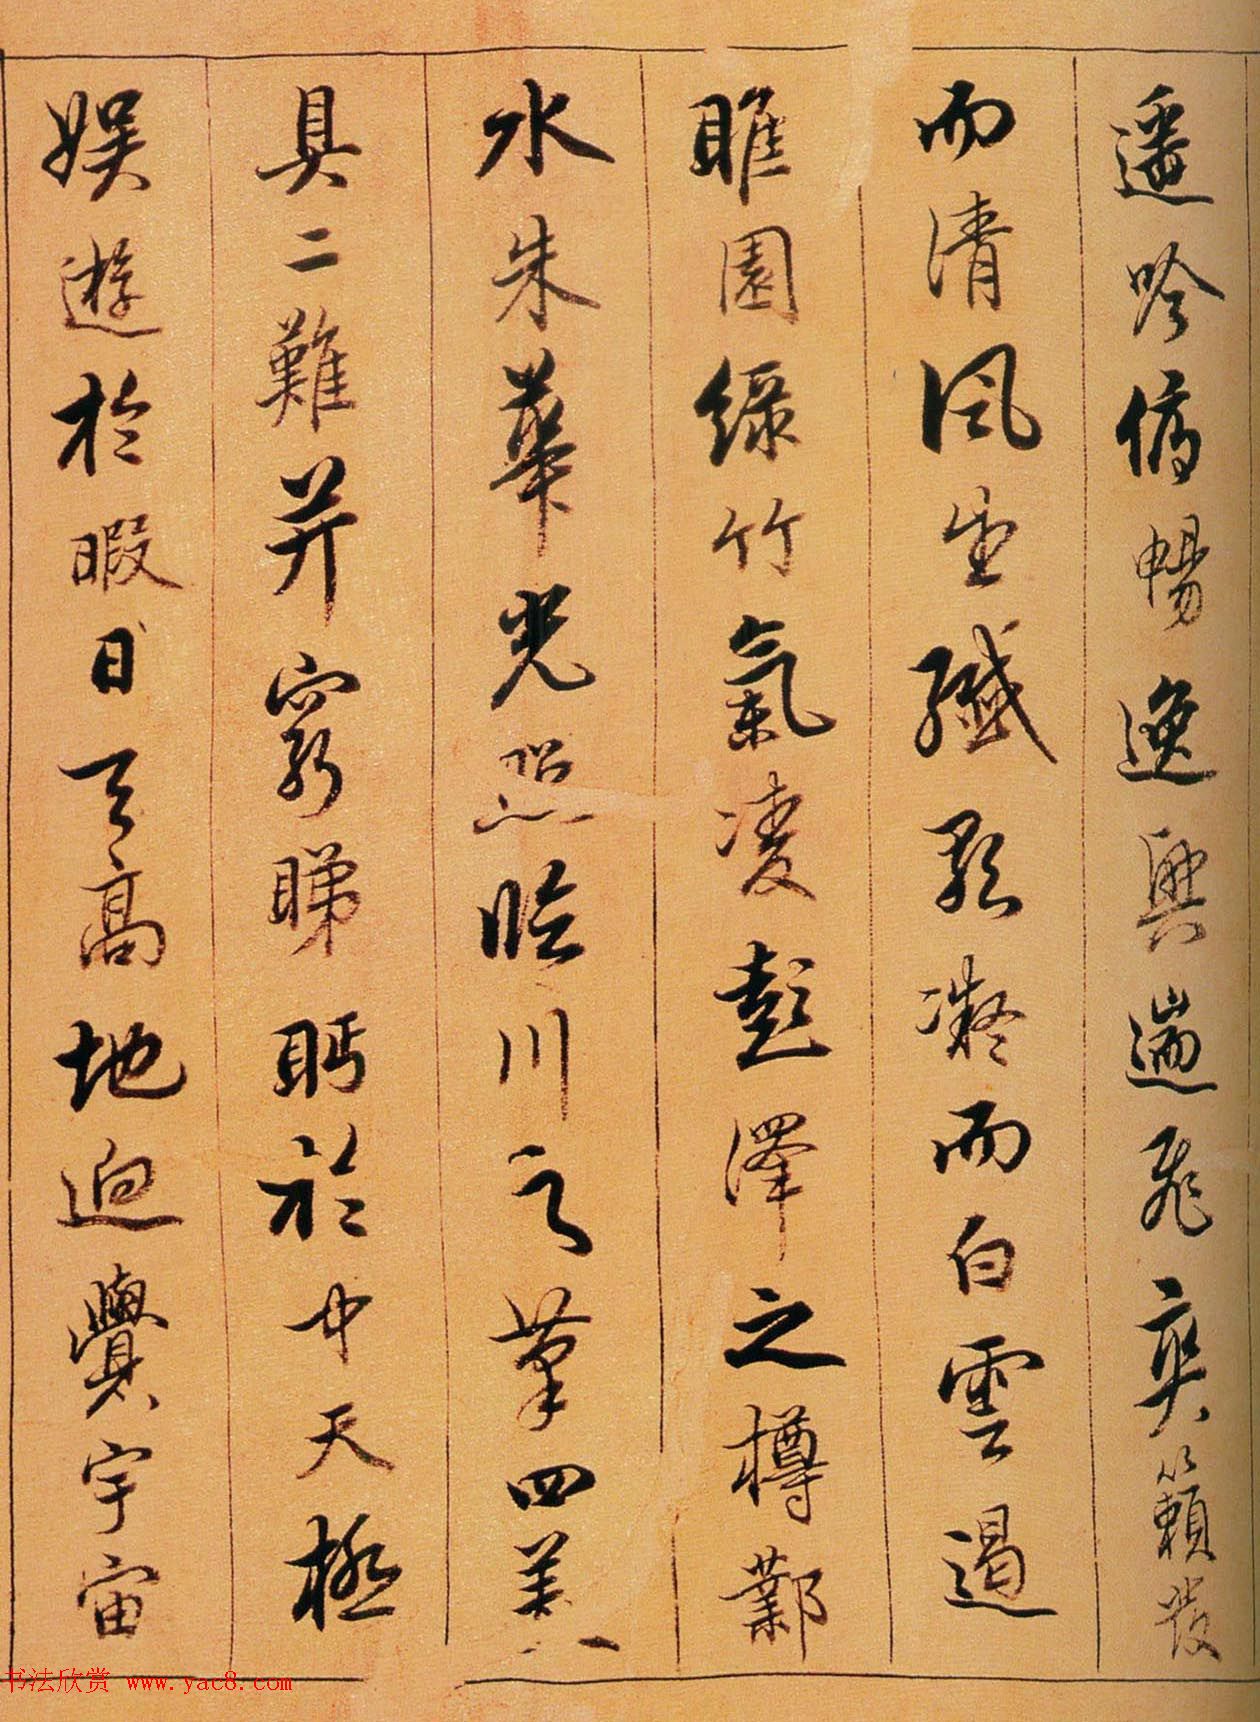 遥吟俯暢逸興遄飛爽籟發
而清風生纖歌凝而白雲遏
睢園綠竹氣凌彭澤之樽鄴
水朱華光照臨川之筆四美
具二難并窮睇眄於中天極
娱遊於暇日天高地迥覺宇宙
书法欣赏 www.yac8.com